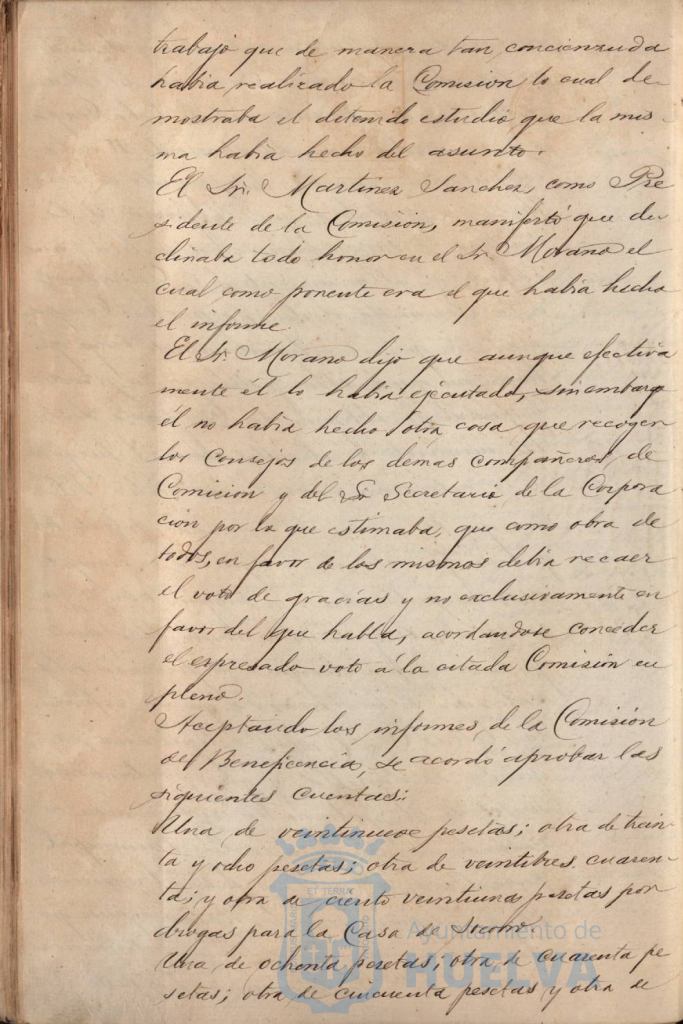 trabajo que de manera tan concienzuda
habia realizado la Comision lo cual de
mostraba el detenido estudio que la mis
ma habia hecho del asunto.
El Sr. Martinez Sanchez, como Pre
sidente de la Comision, manifestó que de
clinaba todo honor en el Sr. Moraño el
cual como ponente era el que habia hecho
el informe.
El Sr. Moraño dijo que aunque efectiva
mente él lo habia ejecutado, sin embargo
él no habia hecho otra cosa que recoger
los Consejos de los demas compañeros de
Comicion y del Sr. Secretario de la Corpora
cion por lo que estimaba, que como obra de
todos, en favor de los mismos debia recaer
el voto de gracias y no exclusivamente en
favor del que habla, acordandose conceder
el espresado voto á la citada Comision en
pleno.
Aceptando los informes de la Comisión
de Beneficencia, se acordó aprobar las
siguientes cuentas:
Una de veintinueve pesetas; otra de trein
ta y ocho pesetas; otra de veintitres cuaren
ta; y otra de ciento veintiuna pesetas por
drogas para la Casa de Socorro
Una de ochenta pesetas; otra de cuarenta pe
setas; otra de cincuenta pesetas y otra de
Ayuntamiento de
HUELVA